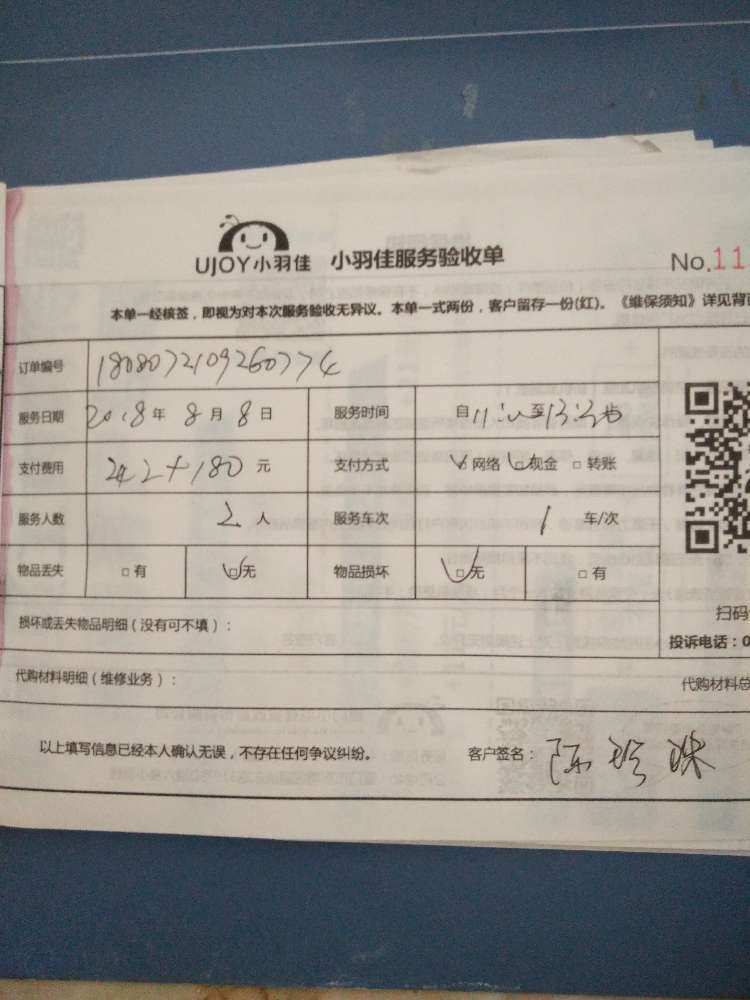 UJOY小羽佳 小羽佳服务验收单 No.11
本单一经核签，即视为对本次服务验收无异议。本单一式两份，客户留存一份(红)。《维保须知》详见背
订单编号 1808072109260774
服务日期 2018年 8月 8日 服务时间 自11:00至13:30
支付费用 242+180 元 支付方式 网络 现金 转账
服务人数 2人 服务车次 1 车/次
物品丢失 有 无 物品损坏 无 有
损坏或丢失物品明细(没有可不填)：
扫码
投诉电话：0
代购材料明细(维修业务)：
代购材料总
以上填写信息已经本人确认无误，不存在任何争议纠纷。 客户签名：陈珍珠